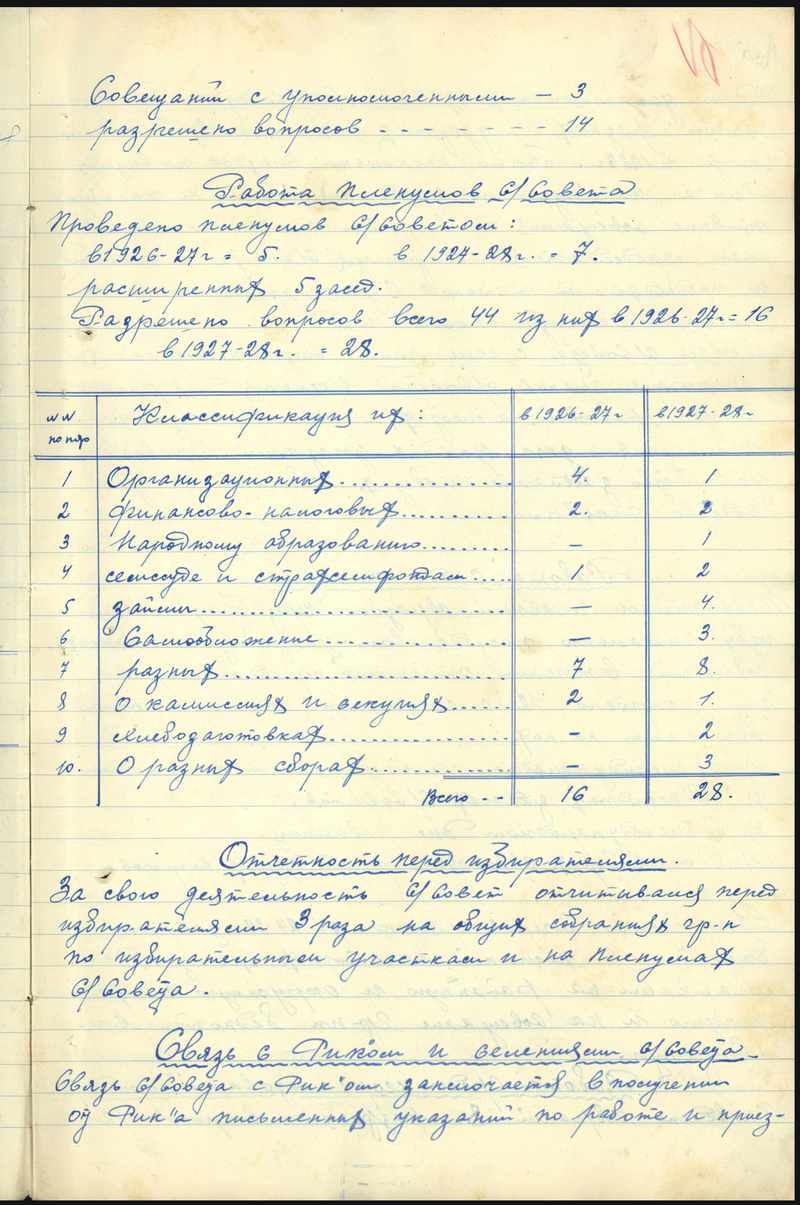 Совещаний с уполномоченными — 3
разрешено вопросов - - - - - - - - 14
Работа пленумов С/Совета
Проведено пленумов С/Советом:
в 1926-27 г = 5. в 1927-28 г. = 7.
расширенных 5 засед.
Разрешено вопросов всего 44 из них в 1926-27 г = 16
в 1927-28 г. = 28.
№№ по пор Классификация их: в 1926-27 г в 1927-28 г
1 Организационных 4. 1
2 финансово-налоговых 2. 2
3 Народному образованию — 1
4 семссуде и страхсемфондам 1 2
5 займы — 4.
6 Самообложение — 3.
7 разных 7 8.
8 О камиссиях и секциях 2 1.
9 хлебозаготовках - 2
10. О разных сборах - 3
Всего - - 16 28.
Отчетность перед избирателями.
За свою деятельность С/Совет отчитывался перед
избирателями 3 раза на общих собраниях гр-н
по избирательным участкам и на пленумах
С/Совета.
Связь с Рик'ом и селениями С/Совета
Связь С/Совета с Рик"ом заключается в получении
от Рик"а письменных указаний по работе и приез-